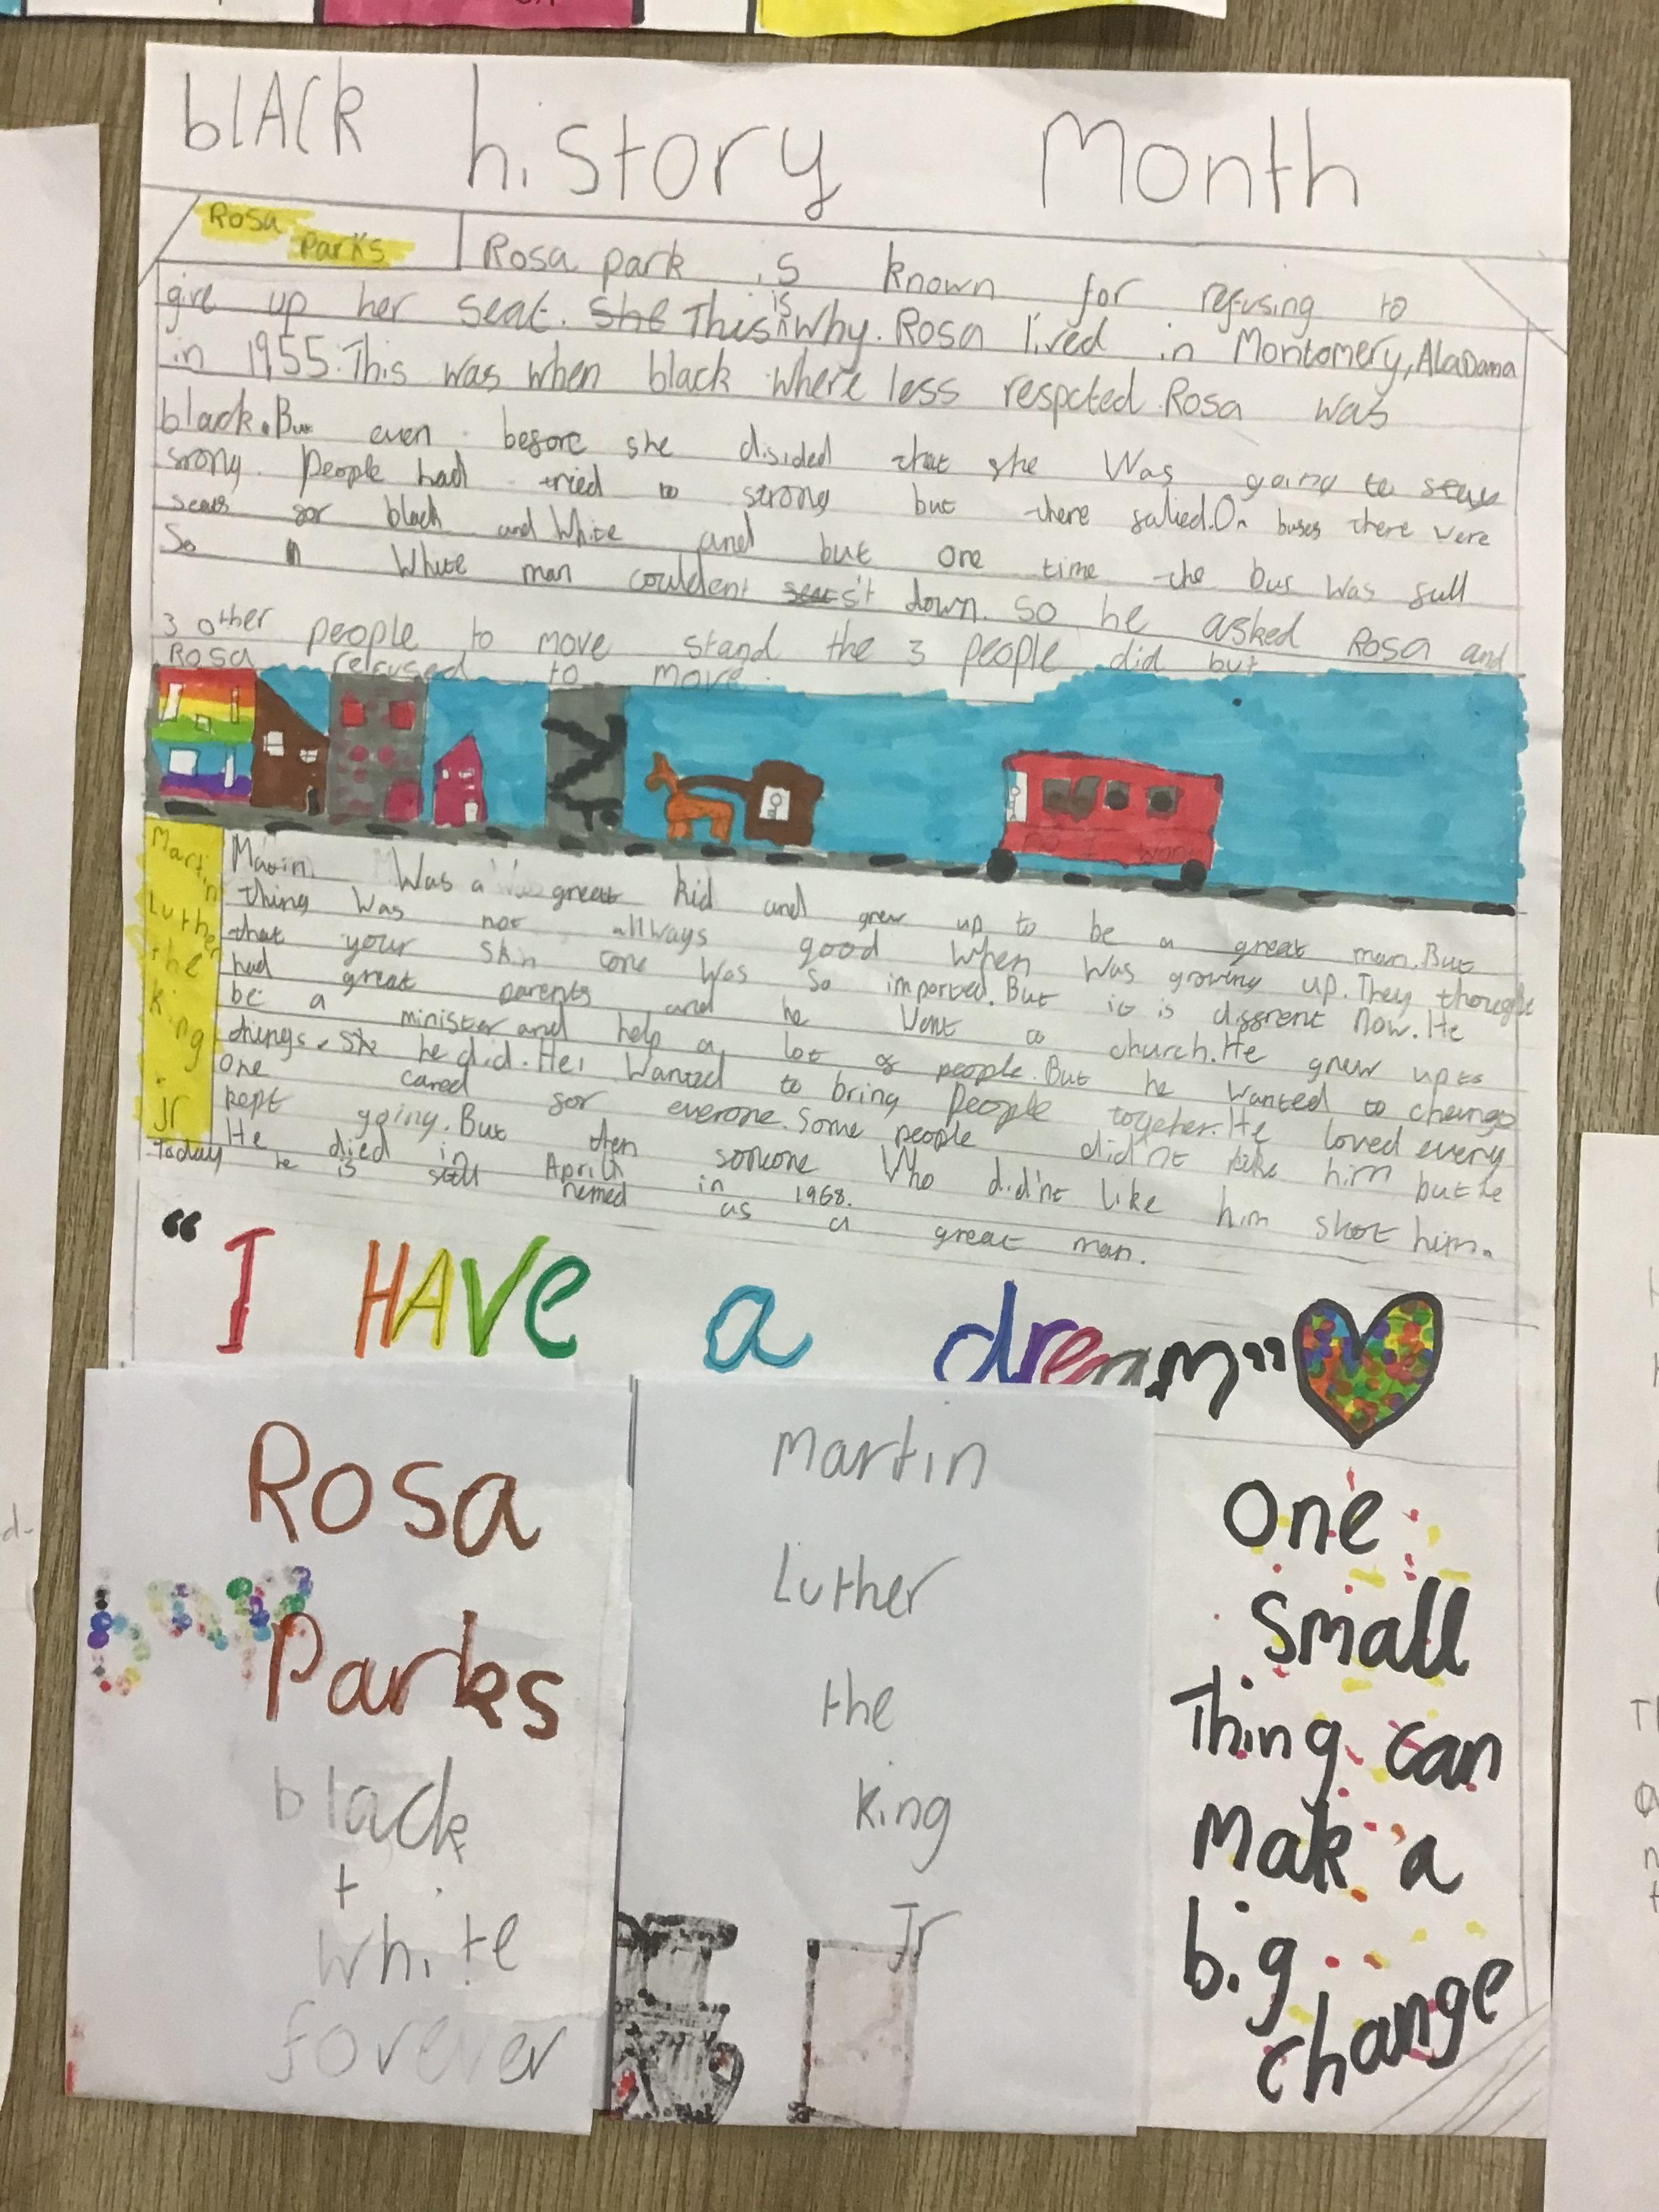 blACk history Month
Rosa
Parks
Rosa park is known for refusing to
give up her seat. She This is why. Rosa lived in Montomery, Alabama
in 1955. This was when black where less respcted. Rosa was
black. But even before she disided that she was going to stay
srong. People had tried to strong but there falied. On buses there were
seats for black and white and but one time the bus was full
So a white man couldent seat sit down. So he asked Rosa and
3 other people to move stand the 3 people did but
Rosa refused to move.
Martin
Luther
the
king
jr
Matin Was a great kid and grew up to be a great man. But
thing was not allways good when was growing up. They thought
that your skin cone was so imported. But it is diffrent now. He
had great parents and he Went to church. He grew up to
be a minister and help a lot of people. But he wanted to change
things. So he did. He Wanted to bring people together. He loved every
one cared for everone. Some people did'nt like him but he
kept going. But then somone Who did'nt like him shot him.
He died in April in 1968.
Today he is still nemed as a great man.
“I HAVe a dream”
Rosa
Parks
black
+
white
forever
Martin
Luther
the
king
Jr
One
Small
Thing can
Mak a
big
change